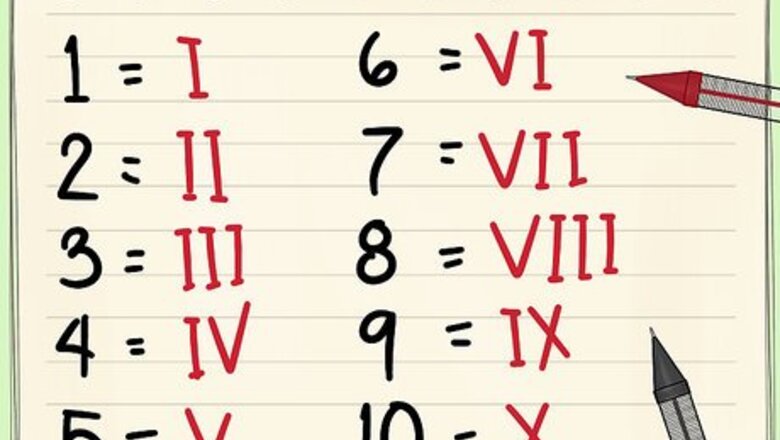 1 = I 6 = VI
2 = II 7 = VII
3 = III 8 = VIII
4 = IV 9 = IX
5 = V 10 = X